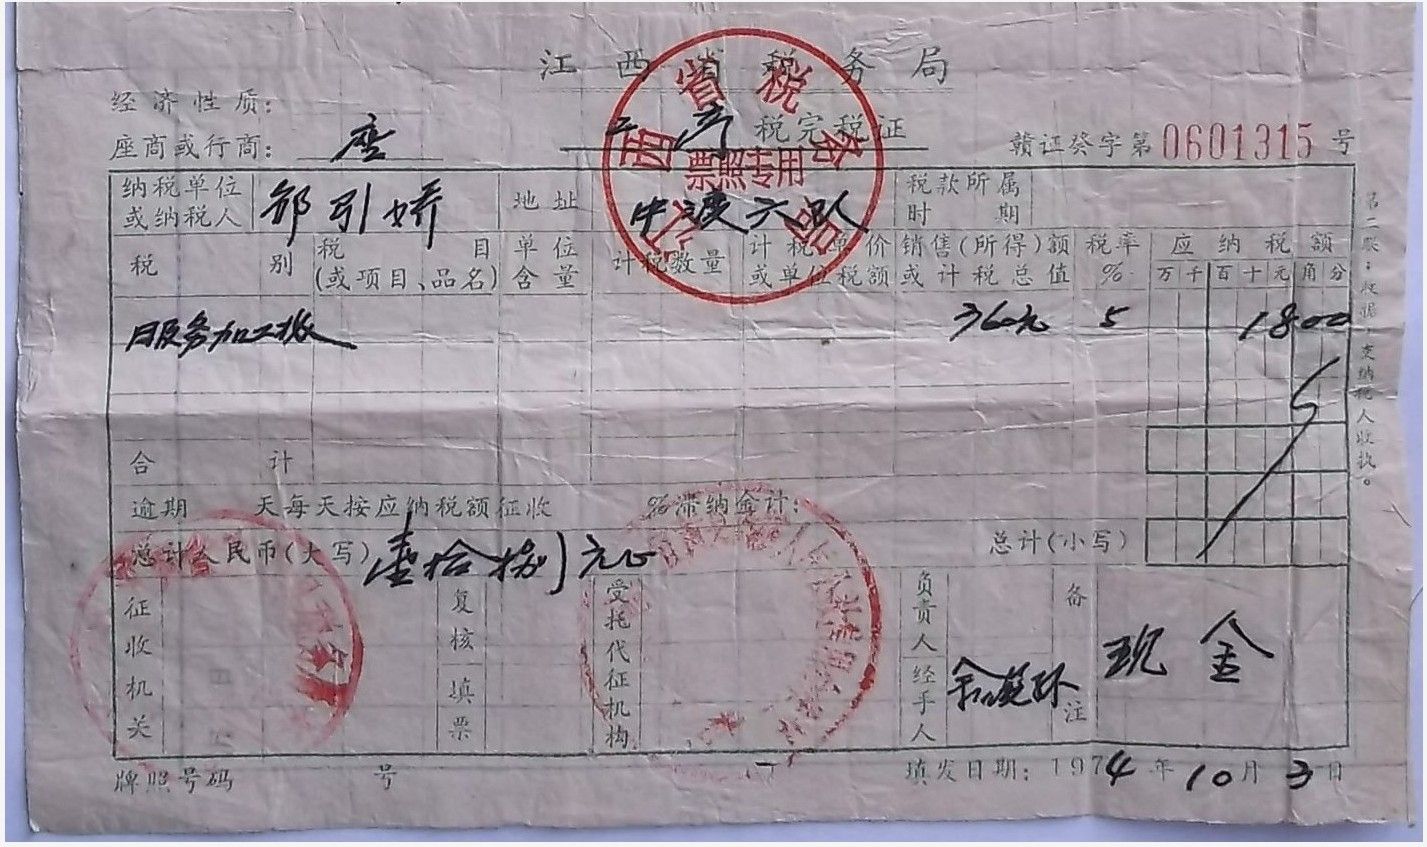 江西省税务局
经济性质：
座商或行商： 座
工商 税完税证
赣证癸字第0601315号
纳税单位或纳税人 邹引娇 地址 中渡六队 税款所属时期
税别 税目(或项目、品名) 单位含量 计税数量 计税单价或单位税额 销售(所得)额或计税总值 税率% 应纳税额
万 千 百 十 元 角 分
服务加工 360元 5 1800
合计
逾期 天每天按应纳税额征收 %滞纳金计：
总计人民币(大写) 壹拾捌元 总计(小写)
征收机关 复核 填票 受托代征机构 负责人 经手人 备注 现金
牌照号码 号 填发日期：1974年10月3日
第二联：收据，交纳税人收执。
江西省税务局
票照专用